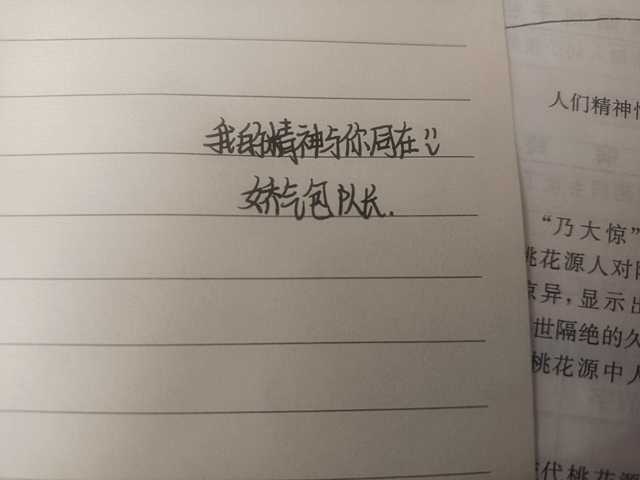 我的精神与你同在!!
娇气包队长.
人们精神
"乃大惊"
桃花源人对
惊异,显示出
世隔绝的久
桃花源中人
代桃花源